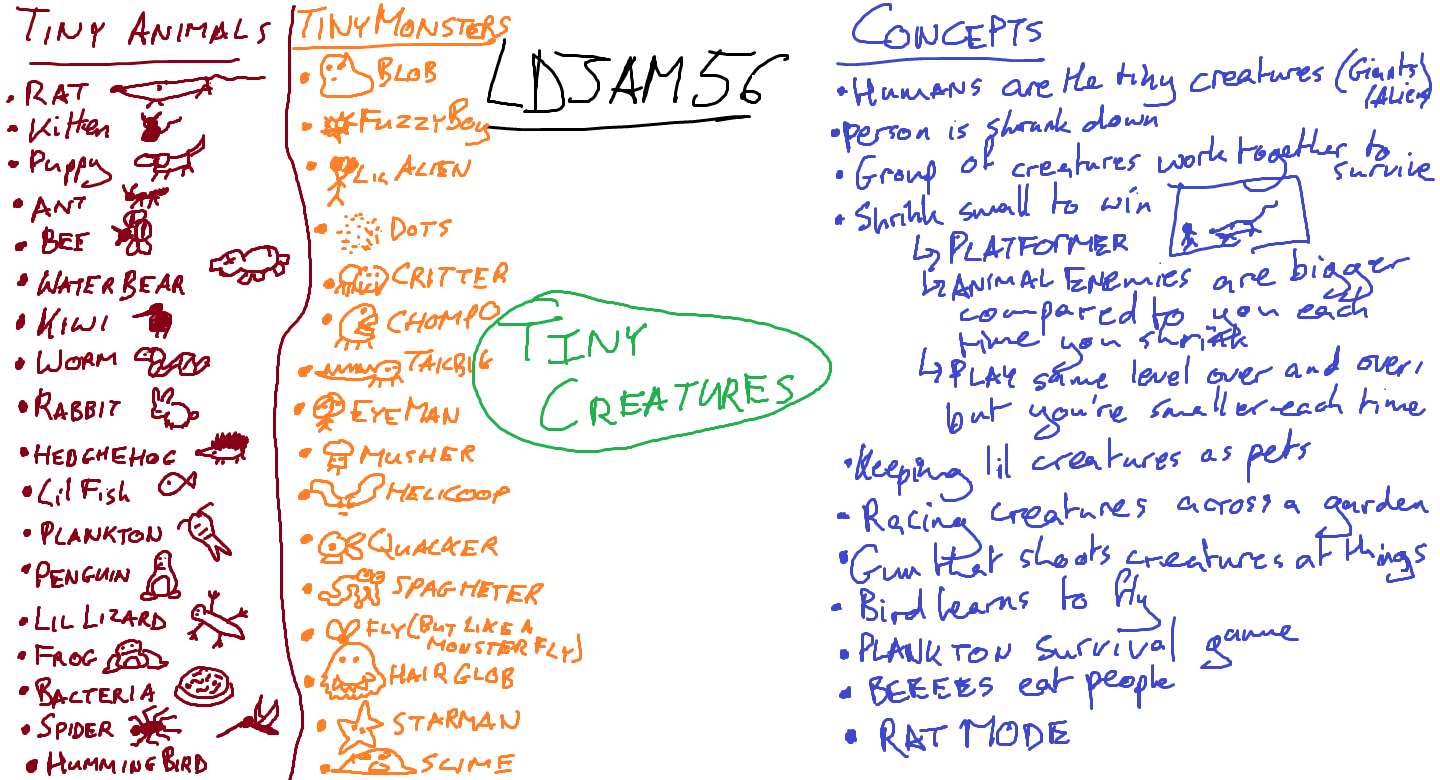 TINY ANIMALS
• RAT
• Kitten
• Puppy
• ANT
• BEE
• WATER BEAR
• KIWI
• WORM
• RABBIT
• HEDGHEHOG
• Lil Fish
• PLANKTON
• PENGUIN
• LIL LIZARD
• FROG
• BACTERIA
• SPIDER
• HUMMING BIRD
TINY MONSTERS
• BLOB
• FUZZYBOY
• LIL ALIEN
• DOTS
• CRITTER
• CHOMPO
• TAILBIG
• EYEMAN
• MUSHER
• HELICOOP
• QUACKER
• SPAGHETER
• FLY (BUT LIKE A
MONSTER FLY)
• HAIR GLOB
• STARMAN
• SLIME
LDJAM56
TINY
CREATURES
CONCEPTS
• Humans are the tiny creatures (Giants)
(Aliens)
• person is shrunk down
• Group of creatures work together to
survive
• Shrink small to win
↳ PLATFORMER
↳ ANIMAL ENEMIES are bigger
compared to you each
time you shrink
↳ PLAY same level over and over,
but you're smaller each time
• Keeping lil creatures as pets
• Racing creatures across a garden
• Gun that shoots creatures at things
• Bird learns to fly
• PLANKTON survival game
• BEEEES eat people
• RAT MODE